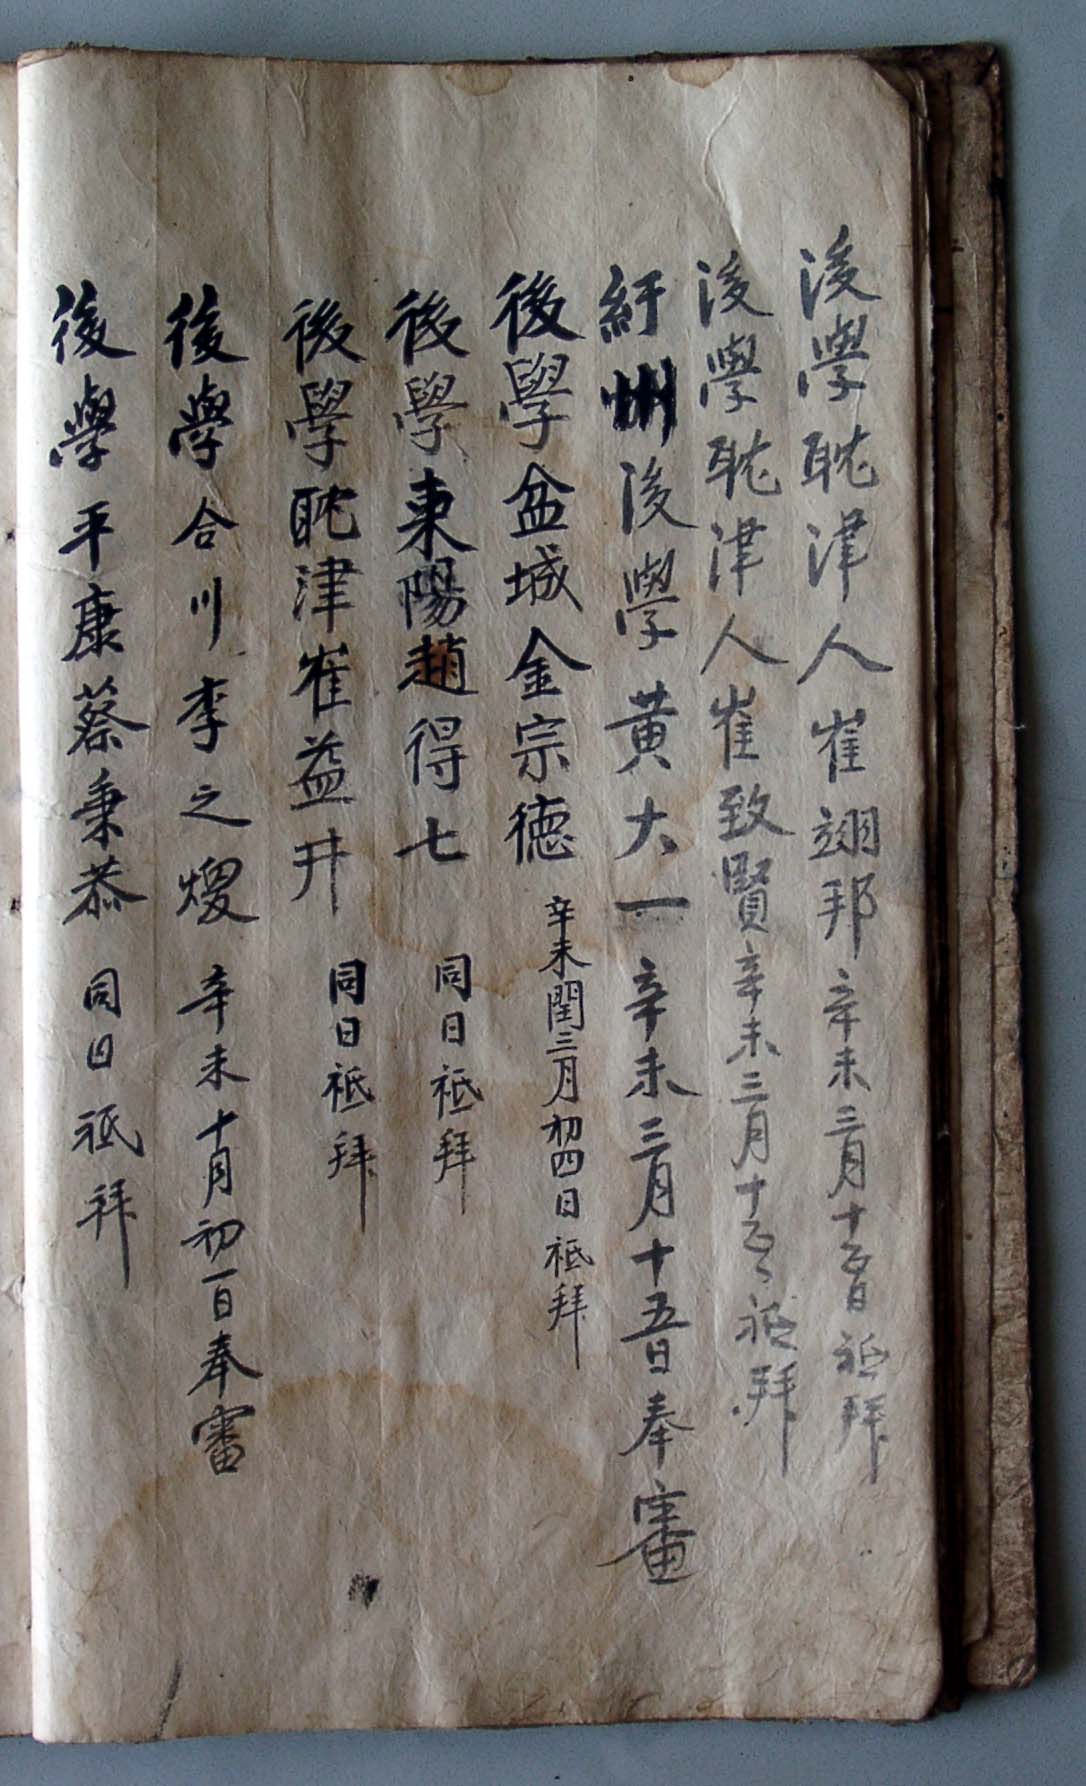 後學耽津人崔翊邦辛未三月十五日祗拜
後學耽津人崔致賢辛未三月十五日祗拜
紆州後學黃大一辛未三月十五日奉審
後學盆城金宗德辛未閏三月初四日祗拜
後學東陽趙得七同日祗拜
後學耽津崔益井同日祗拜
後學合川李之熳辛未十月初一日奉審
後學平康蔡秉恭同日祗拜